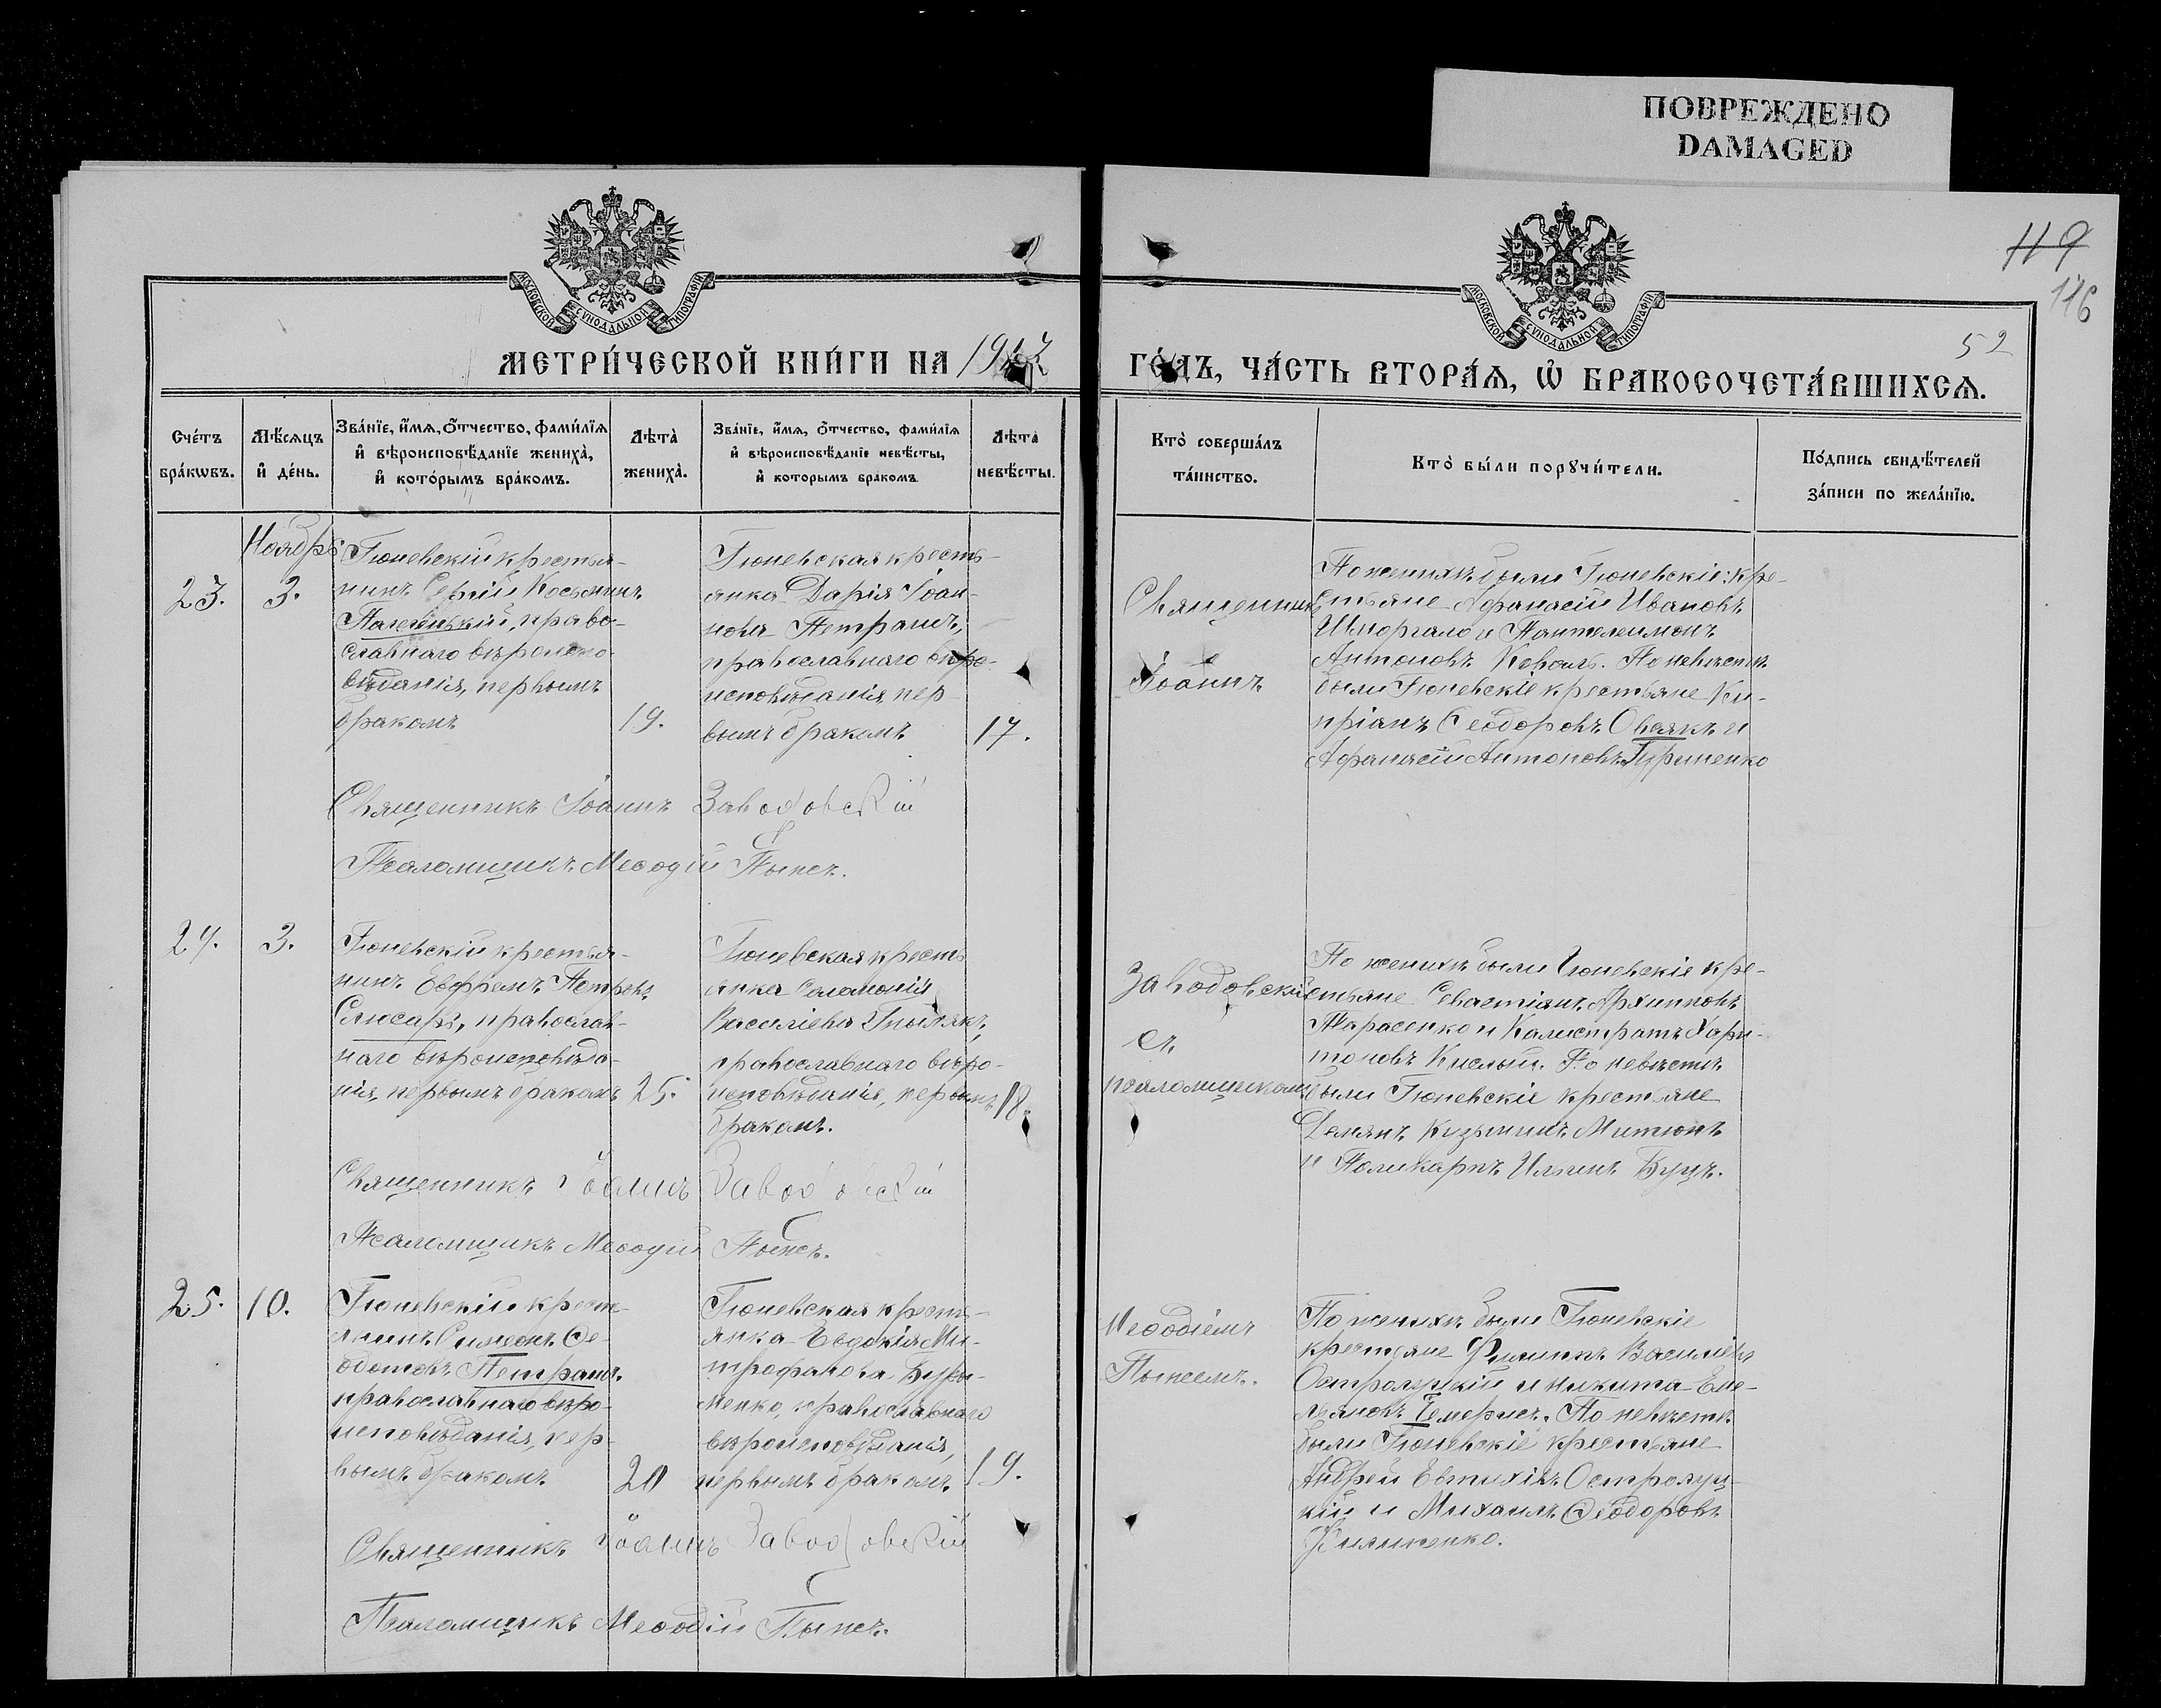 ПОВРЕЖДЕНО
DAMAGED
119
116
52
МОСКОВСКОЙ СУНОДАЛЬНОЙ ТИПОГРАФІИ
МОСКОВСКОЙ СУНОДАЛЬНОЙ ТИПОГРАФІИ
МЕТРИ́ЧЕСКОЙ КНИ́ГИ НА
ГО́ДЪ, ЧА́СТЬ ВТОРА́Ѧ, Ѡ҆ БРАКОСОЧЕТА́ВШИХСѦ.
Сче́тъ бра́кѡвъ.
Мѣ́сѧцъ и҆ де́нь.
Зва́нїе, и҆́мѧ, ѻ҆́тчество, фами́лїѧ и҆ вѣроисповѣ́данїе жениха̀, и҆ кото́рымъ бра́комъ.
Лѣта̀ жениха̀.
Зва́нїе, и҆́мѧ, ѻ҆́тчество, фами́лїѧ и҆ вѣроисповѣ́данїе невѣ́сты, и҆ кото́рымъ бра́комъ
Лѣта̀ невѣ́сты.
Кто̀ соверша́лъ та́инство.
Кто̀ бы́ли порꙋчи́тели.
По́дпись свидѣ́телей за́писи по жела́нїю.
Ноябрь
23.
3.
Гюневскій крестья-
нинъ Сергій Косьминъ
право-
славнаго вѣроиспо-
вѣданія, первымъ
бракомъ
19.
Гюневская кресть-
янка Дарія Іоан-
нова Петрашъ,
православнаго вѣро-
исповѣданія, пер-
вымъ бракомъ
17.
Священникъ
Іоаннъ
По женихѣ были Гюневскіе кре-
стьяне Афанасій Ивановъ
Шморгало и Пантелеимонъ
Антоновъ Коваль. По невѣстѣ
были Гюневскіе крестьяне Ки-
пріанъ Ѳеодоровъ Овсякъ и
Афанасій Антоновъ
Священникъ Іоаннъ Заводовскій
Псаломщикъ Меѳодій Пыпсъ.
24.
3.
Гюневскій крестья-
нинъ Евфремъ Петровъ
Слюсарь, православ-
наго вѣроисповѣда-
нія, первымъ бракомъ
25.
Гюневская кресть
янка Саламонія
Василіева
православнаго вѣро-
исповѣданія, первымъ
бракомъ.
18.
Заводовскій
съ
псаломщикомъ
По женихѣ были Гюневскіе кре-
стьяне Севастіанъ Архиповъ
Тарасенко и Калистратъ Хари-
тоновъ Кислый. По невѣстѣ
были Гюневскіе крестьяне
Демянъ Кузьминъ Митюнъ
и Поликарпъ Ильинъ Буцъ.
Священникъ Іоаннъ Заводовскій
Псаломщикъ Меѳодій Пыпсъ.
25.
10.
Гюневскій крест-
янинъ Симеонъ Ѳе-
дотовъ Петрашъ.
православнаго вѣро-
исповѣданія, пер-
вымъ бракомъ
20
Гюневская кресть-
янка Евдокія Ми-
трофанова
православнаго
вѣроисповѣданія,
первымъ бракомъ
19.
Меѳодіемъ
Пыпсемъ.
По женихѣ были Гюневскіе
крестьяне Филиппъ Василіевъ
Остролуцкій и Никита Еме-
льяновъ Чемерисъ. По невѣстѣ
были Гюневскіе крестьяне
Андрей Евтихіевъ Остролуц-
кій и Михаилъ Ѳеодоровъ
Священникъ Іоаннъ Заводовскій
Псаломщикъ Меѳодій Пыпсъ.